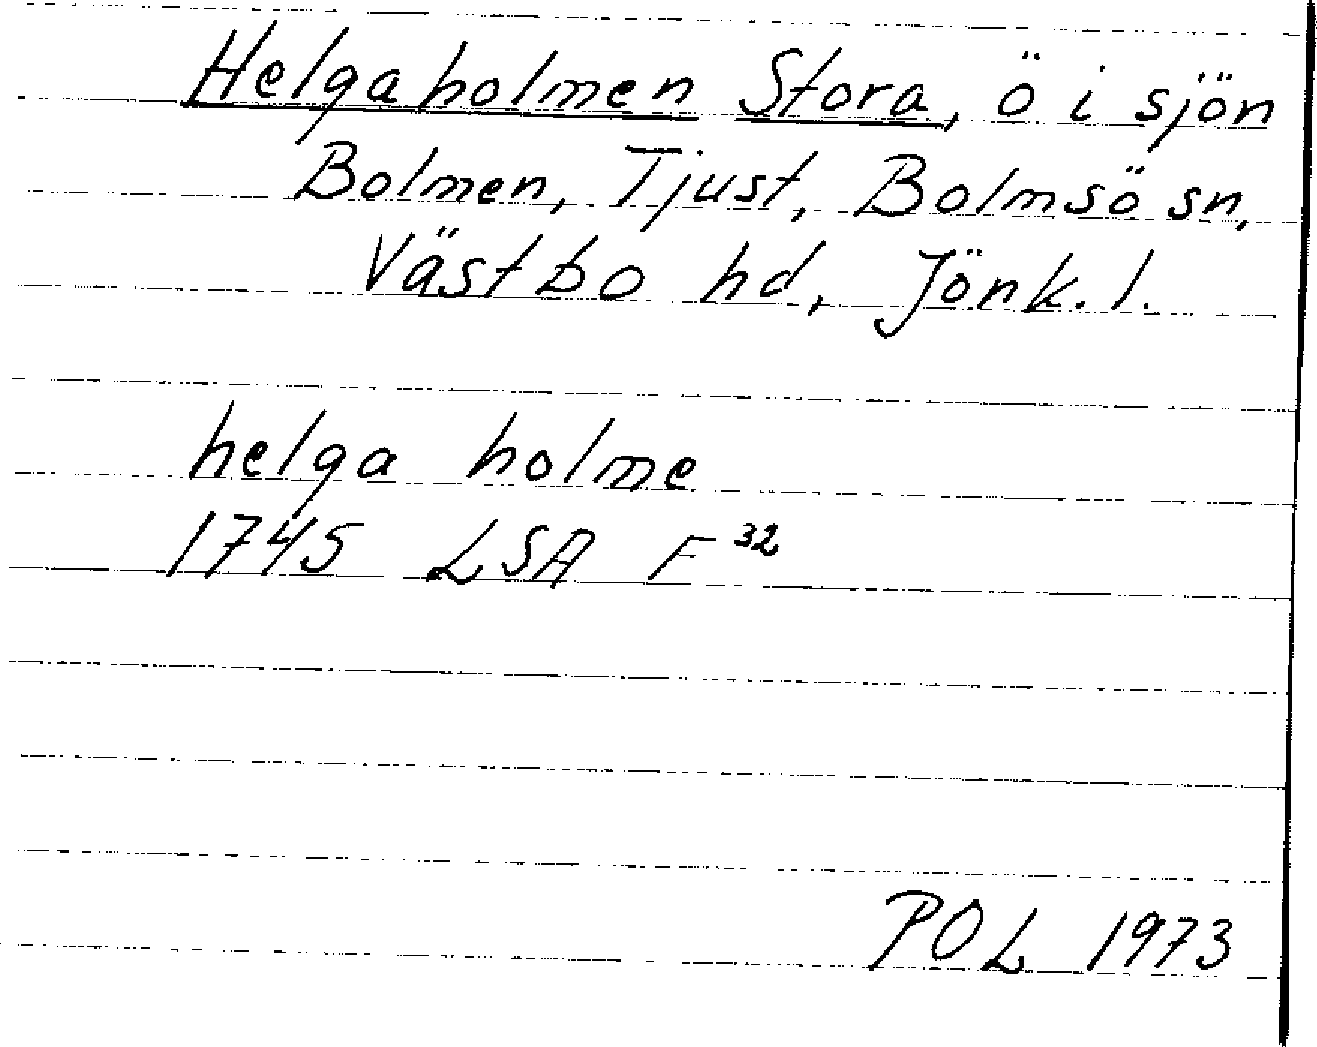 Helgaholmen Stora, ö i sjön
Bolmen, Tjust, Bolmsö sn,
Västbo hd, Jönk. l.
helga holme
1745 LSA F³²
POL 1973